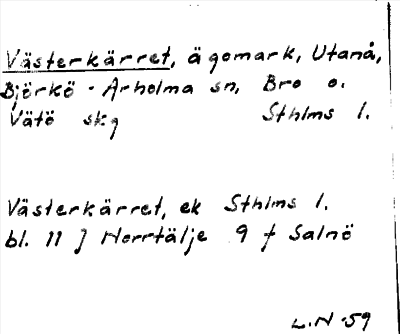 Västerkärret, ägomark, Utanå,
Björkö-Arholma sn, Bro o.
Vätö skg Sthlms l.
Västerkärret, ek Sthlms l.
bl. 11 J Norrtälje 9 f Salnö
L.N -59